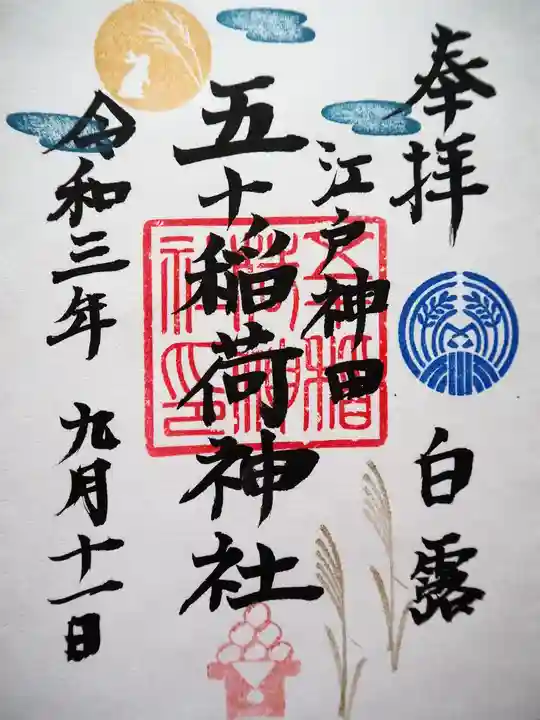 奉拝
白露
江戸神田
五十稲荷神社
令和三年
九月十一日